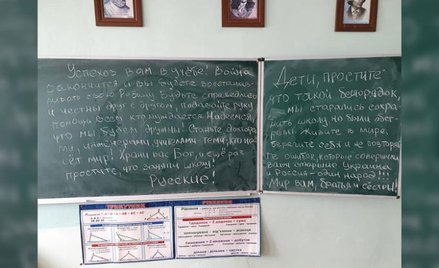 Успехов вам в учёбе! Война
закончится и вы будете восстанав-
ливать свою Родину. Будьте справедливы
и честны друг с другом, подавайте руку
помощи всем, кто нуждается. Надеемся,
что мы будем дружны. Станьте докторa-
ми, инженерами, учителями, теми, кто не-
сёт мир! Храни вас Бог, и ещё раз
простите что заняли школу!
Русские!
Дети, простите
что такой беспорядок,
мы старались сохра-
нить школу но были обст-
релы. Живите в мире,
берегите себя и не повторяй-
те ошибок, которые совершили
ваши старшие. Украина
и Россия - один народ!!!
Мир вам, братья и сёстры!
ТРИКУТНИК
РІВНЯННЯ